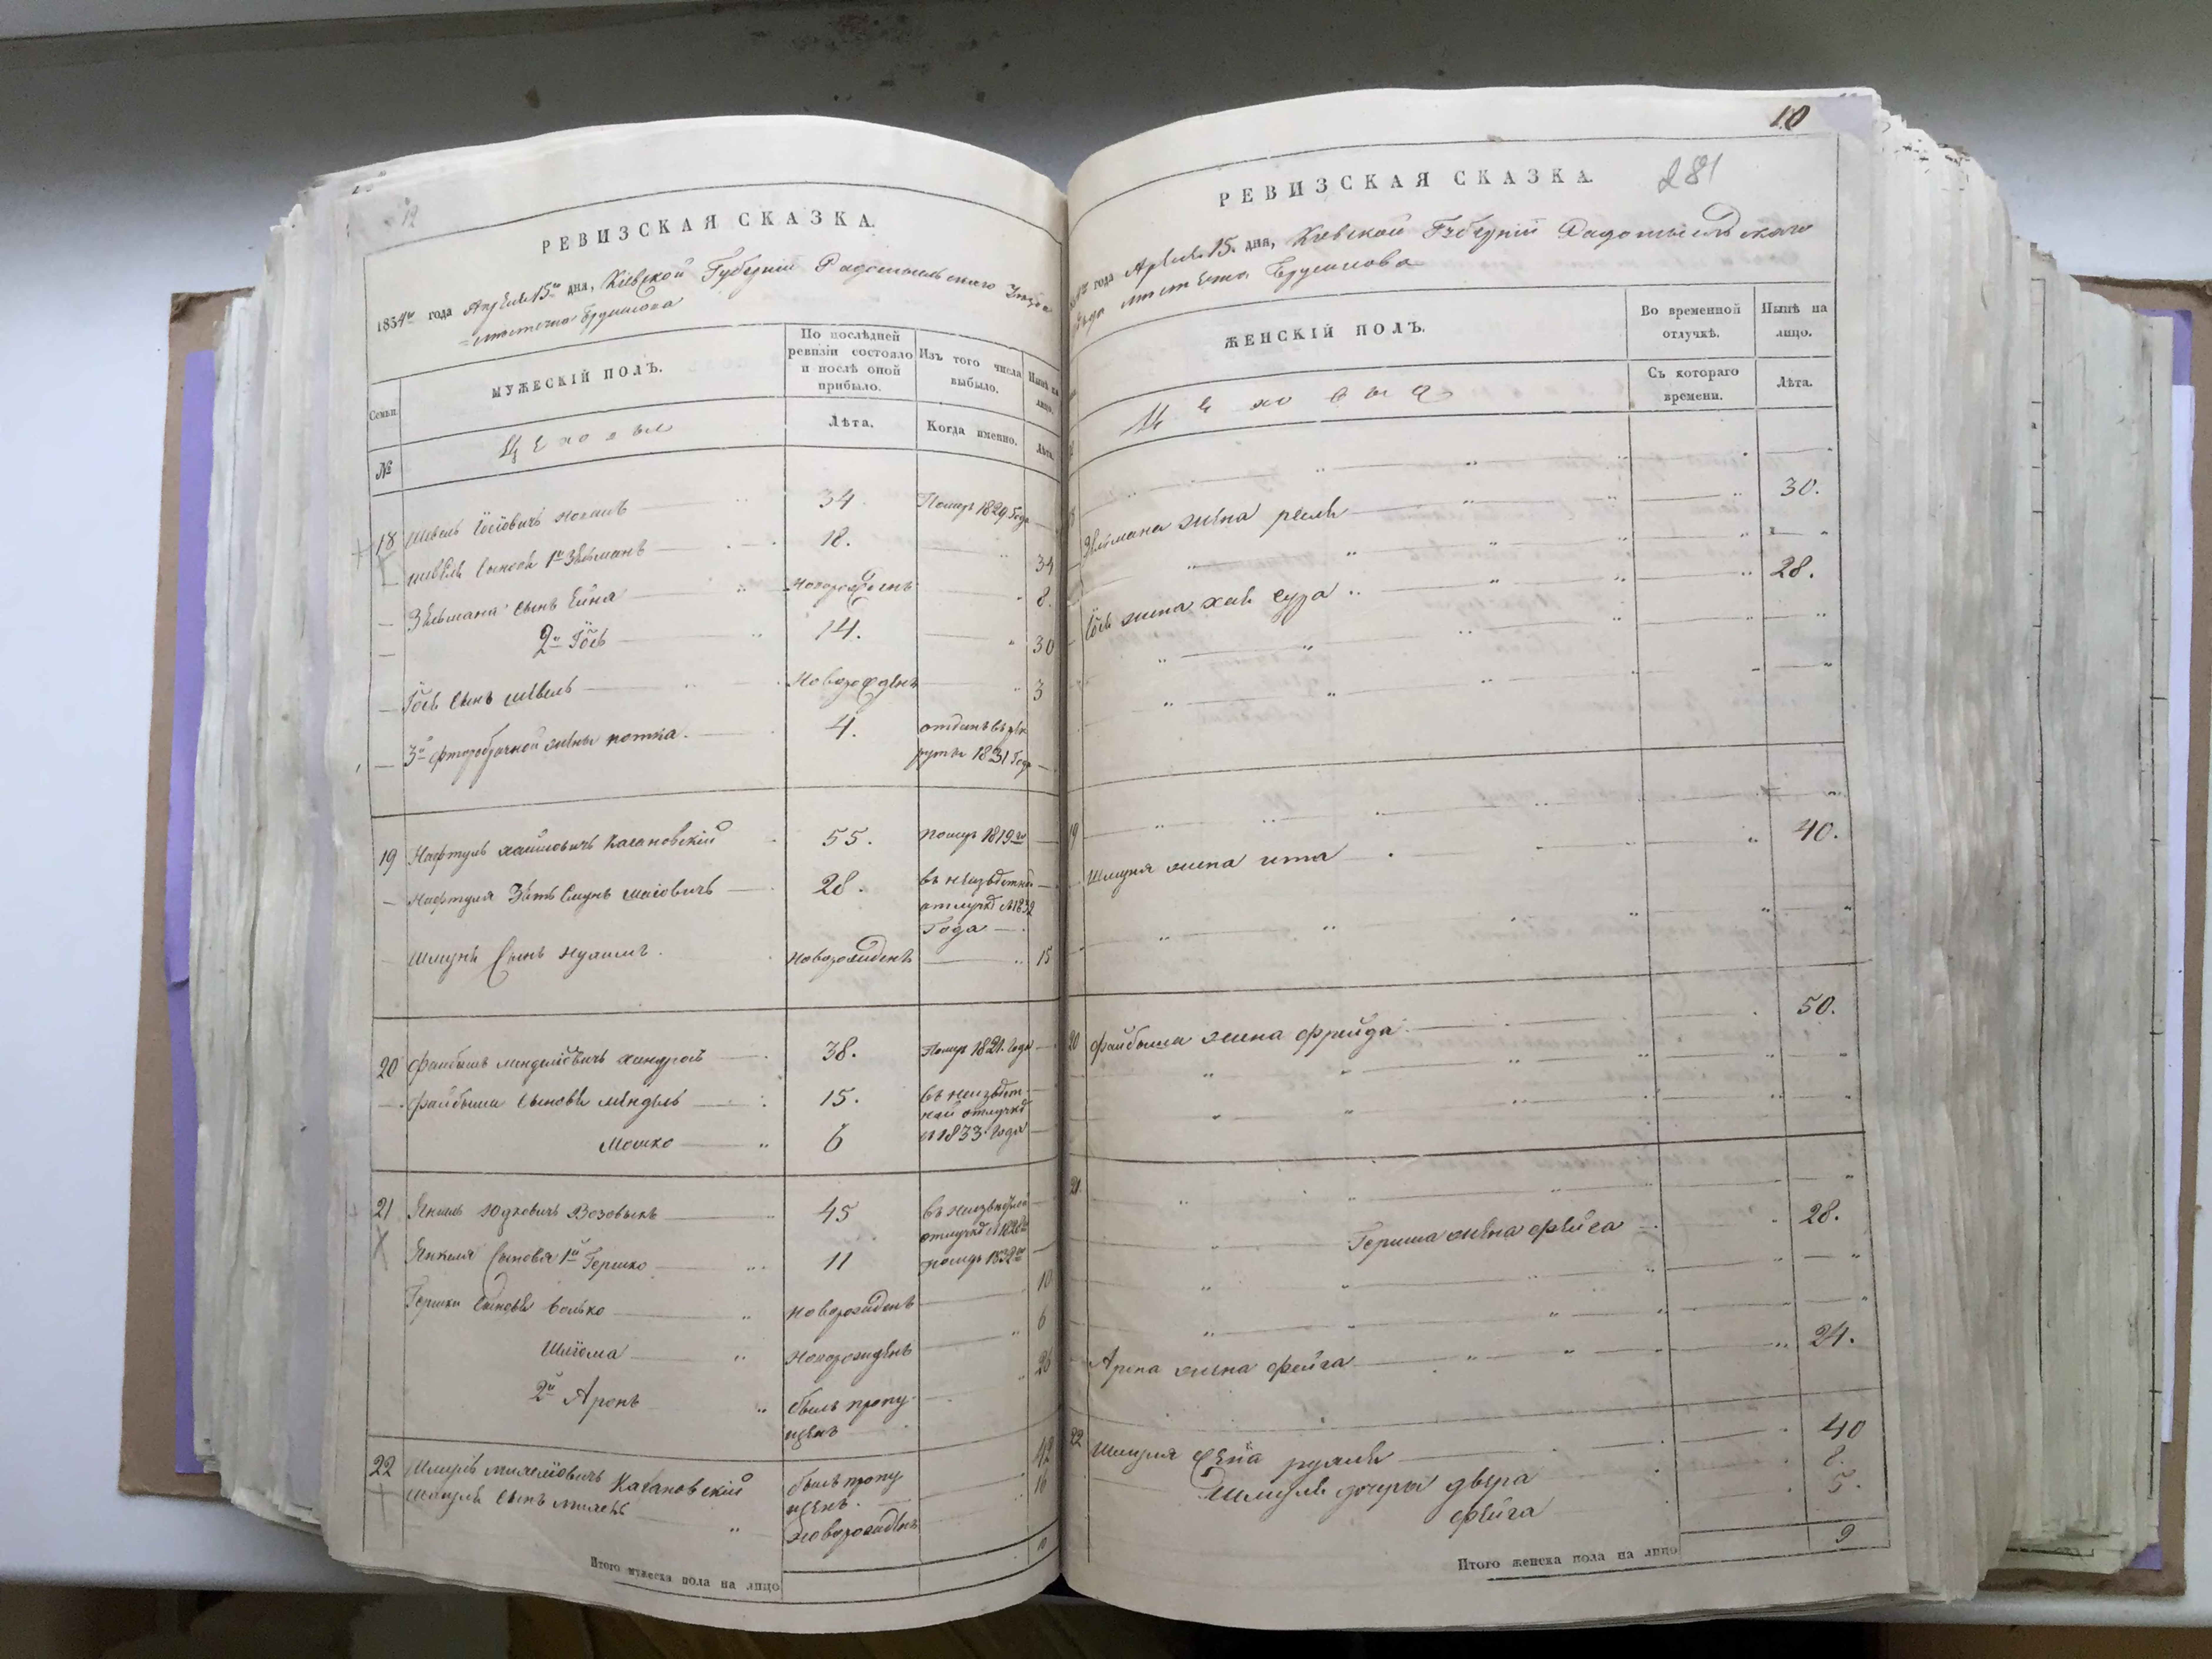 12
РЕВИЗСКАЯ СКАЗКА.
1834го года Апреля 15го дня, Киевской Губернии Радомысльского Уезда
местечка Брусилова
Семьи
МУЖЕСКІЙ ПОЛЪ.
По послѣдней ревизіи состояло и послѣ оной прибыло.
Изъ того числа выбыло.
Нынѣ на лицо.
№
Цеховые
Лѣта.
Когда именно.
Лѣта.
18 Шевель Іосіовичъ 34. Помер 1829 Года
Шевеля Сыновя 1й Зельманъ 18. 34
Зельмана Сынъ Ейна Новорожденъ 8.
2й Іось 14. 30
Іося Сынъ Шевель Новорожденъ 3
3й фторобрачной жены мотка. 4. отданъ въ рекруты 1831 Года
19 Нафтуль Хаимовичъ Качановскій 55. Помер 1819го
Нафтуля Зять Шмунь 28. въ неизвестной отлучке с 1832 Года
Шмуня Сынъ Нухимъ. Новорожденъ 15
20 Файбышъ Менделіовичъ 38. Помер 1821. Года
Файбыша Сыновя Мендель 15. въ неизвестной отлучке
Мошко 6 с 1833 Года
21 Янкель Юдковичъ Возовыкъ 45 въ неизвестной отлучке
Янкеля Сыновя 1й Гершко 11 помер 1832го
Гершки Сыновя Волько Новорожденъ 10
Шліома Новорожденъ 6
2й Аронъ былъ пропущенъ 26
22 Шмуль Милехіовичъ Качановскій былъ пропущенъ. 42
Шмуля Сынъ Милехъ Новорожденъ 16
Итого мужеска пола на лицо 10
10
281
РЕВИЗСКАЯ СКАЗКА.
года Апреля 15. дня, Киевской Губерніи Радомысльского
Уезда местечка Брусилова
ЖЕНСКІЙ ПОЛЪ.
Во временной отлучкѣ.
Нынѣ на лицо.
Цеховыя
Съ котораго времени.
Лѣта.
Зельмана жена рехля 30.
Іося жена хая сура 28.
19
Шмуня жена ита 40.
20 Файбыша жена фрейда 50.
21
Герша жена фейга 28.
Арона жена фейга 24.
22 Шмуля жена рухля 40
Шмуля дочери двера 8.
фейга 5.
Итого женска пола на лицо 9